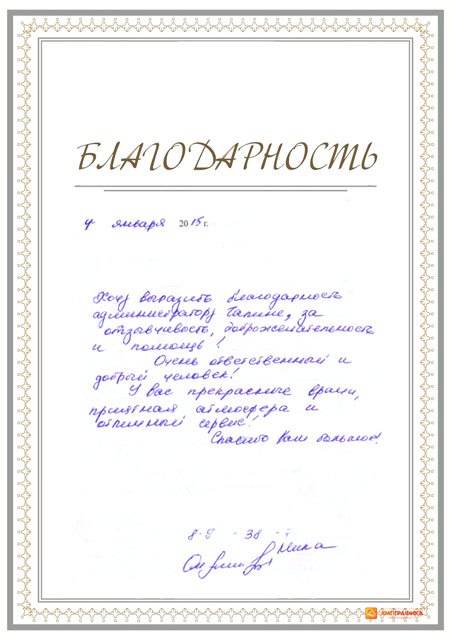 БЛАГОДАРНОСТЬ
4 января 2015 г.
Хочу выразить благодарность
администратору Галине, за
отзывчивость, доброжелательность
и помощь!
Очень ответственный и
добрый человек!
У вас прекрасные врачи,
приятная атмосфера и
отличный сервис!
Спасибо Вам большое!
8-9 - 38 -